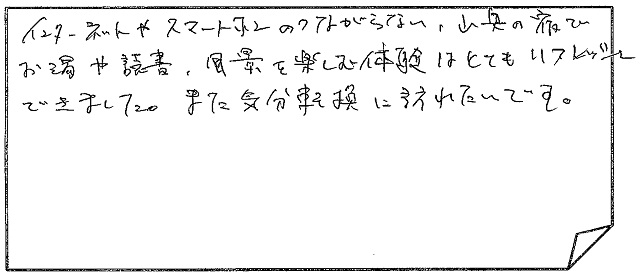 インターネットやスマートホンのつながらない、山奥の宿で
お湯や読書、風景を楽しむ体験はとてもリフレッシュ
できました。また気分転換に訪れたいです。